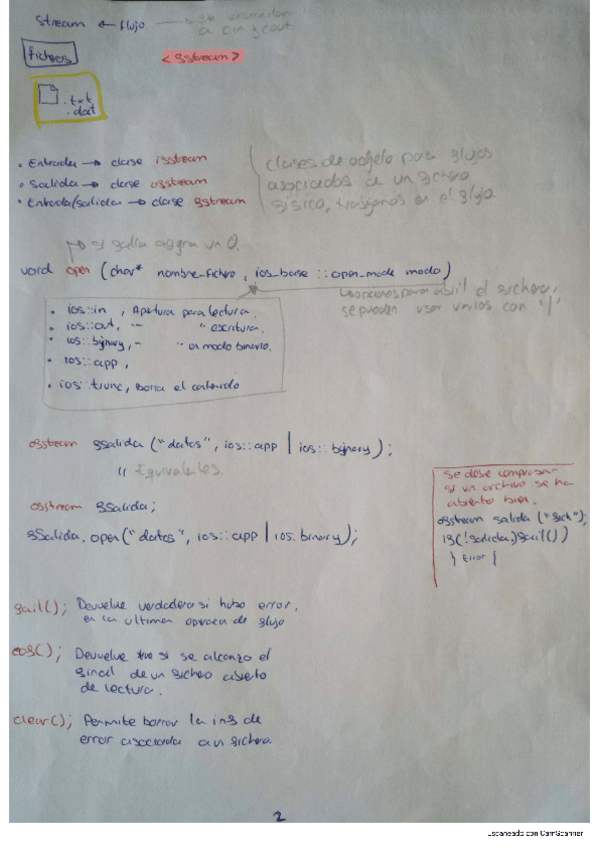 Stream ← flujo → se
a cin y cout
ficheros
<fstream>
.txt
.dat
• Entrada → clase ifstream
• Salida → clase ofstream
• Entrada/salida → clase fstream
clases de objeto para flujos
asociados a un fichero
físico, en el flujo.
→ si falla un 0.
void open (char* nombre_fichero, ios_base::open_mode modo)
opciones para abrir el fichero,
se pueden usar varios con '|'
• ios::in, Apertura para lectura.
• ios::out, — " escritura.
• ios::binary, - " en modo binario.
• ios::app,
• ios::trunc, borra el contenido
ofstream fsalida ("datos", ios::app | ios::binary);
" Equivalentes
ofstream fsalida;
fsalida.open("datos", ios::app | ios:binary);
se debe comprobar
si un archivo se ha
abierto bien.
ofstream salida ("fich");
if(!salida.)fail())
} Error {
fail(); Devuelve verdadero si hubo error,
en la ultima de flujo
eof(); Devuelve true si se alcanzo el
final de un fichero abierto
de lectura.
clear(); Permite borrar la inf de
error asociada a un fichero.
2
Escaneado con CamScanner